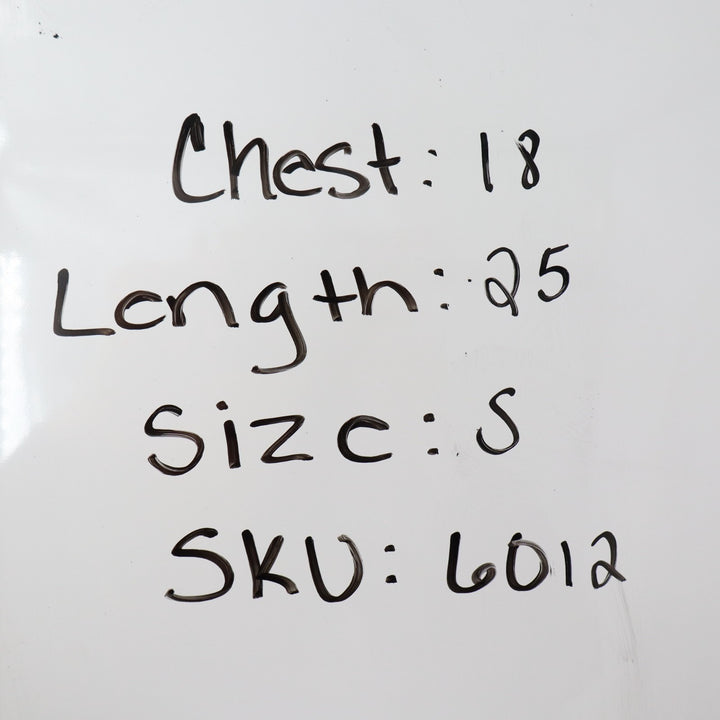 Chest: 18
Length: 25
Size: S
SKU: 6012